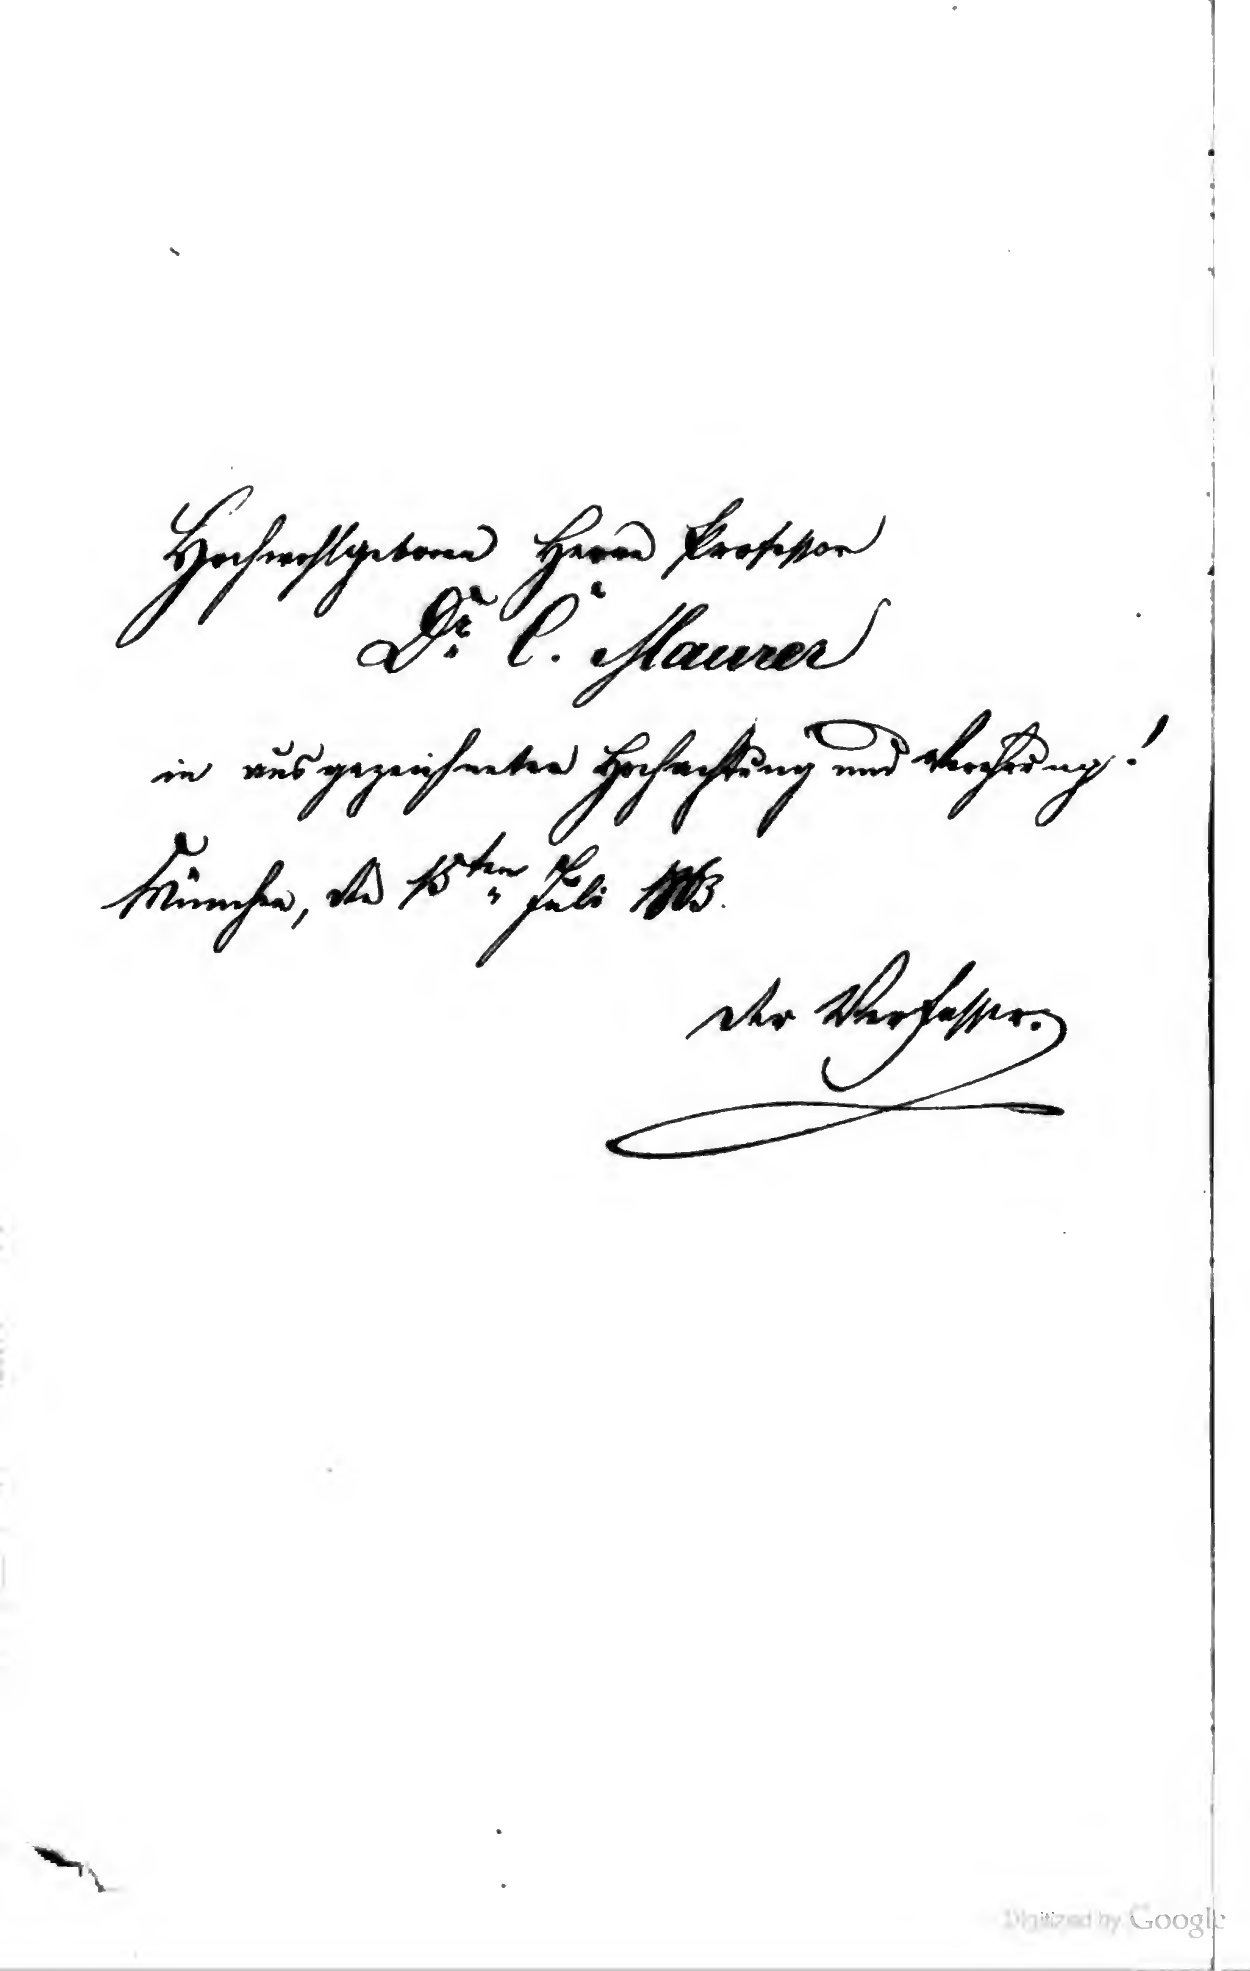 Hochwohlgeboren Herrn Professor
Dr. C. Maurer
in ausgezeichneter Hochachtung und Verehrung!
München, den ten Juli
Der Verfasser.
Digitized by Google